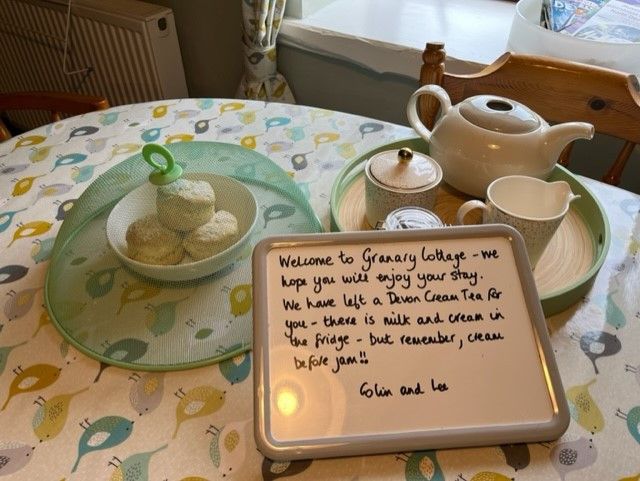 Welcome to Granary Cottage - we
hope you will enjoy your stay.
We have left a Devon Cream Tea for
you - there is milk and cream in
the fridge - but remember, cream
before jam!!
Colin and Lee